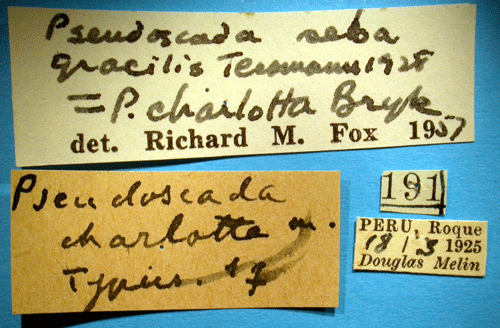 Pseudoscada seba
gracilis Tessmann 1928
= P. charlotta Bryk
det. Richard M. Fox 1957
Pseudoscada
charlotta m.
Typus.
191
PERU, Roque
18/3 1925
Douglas Melin